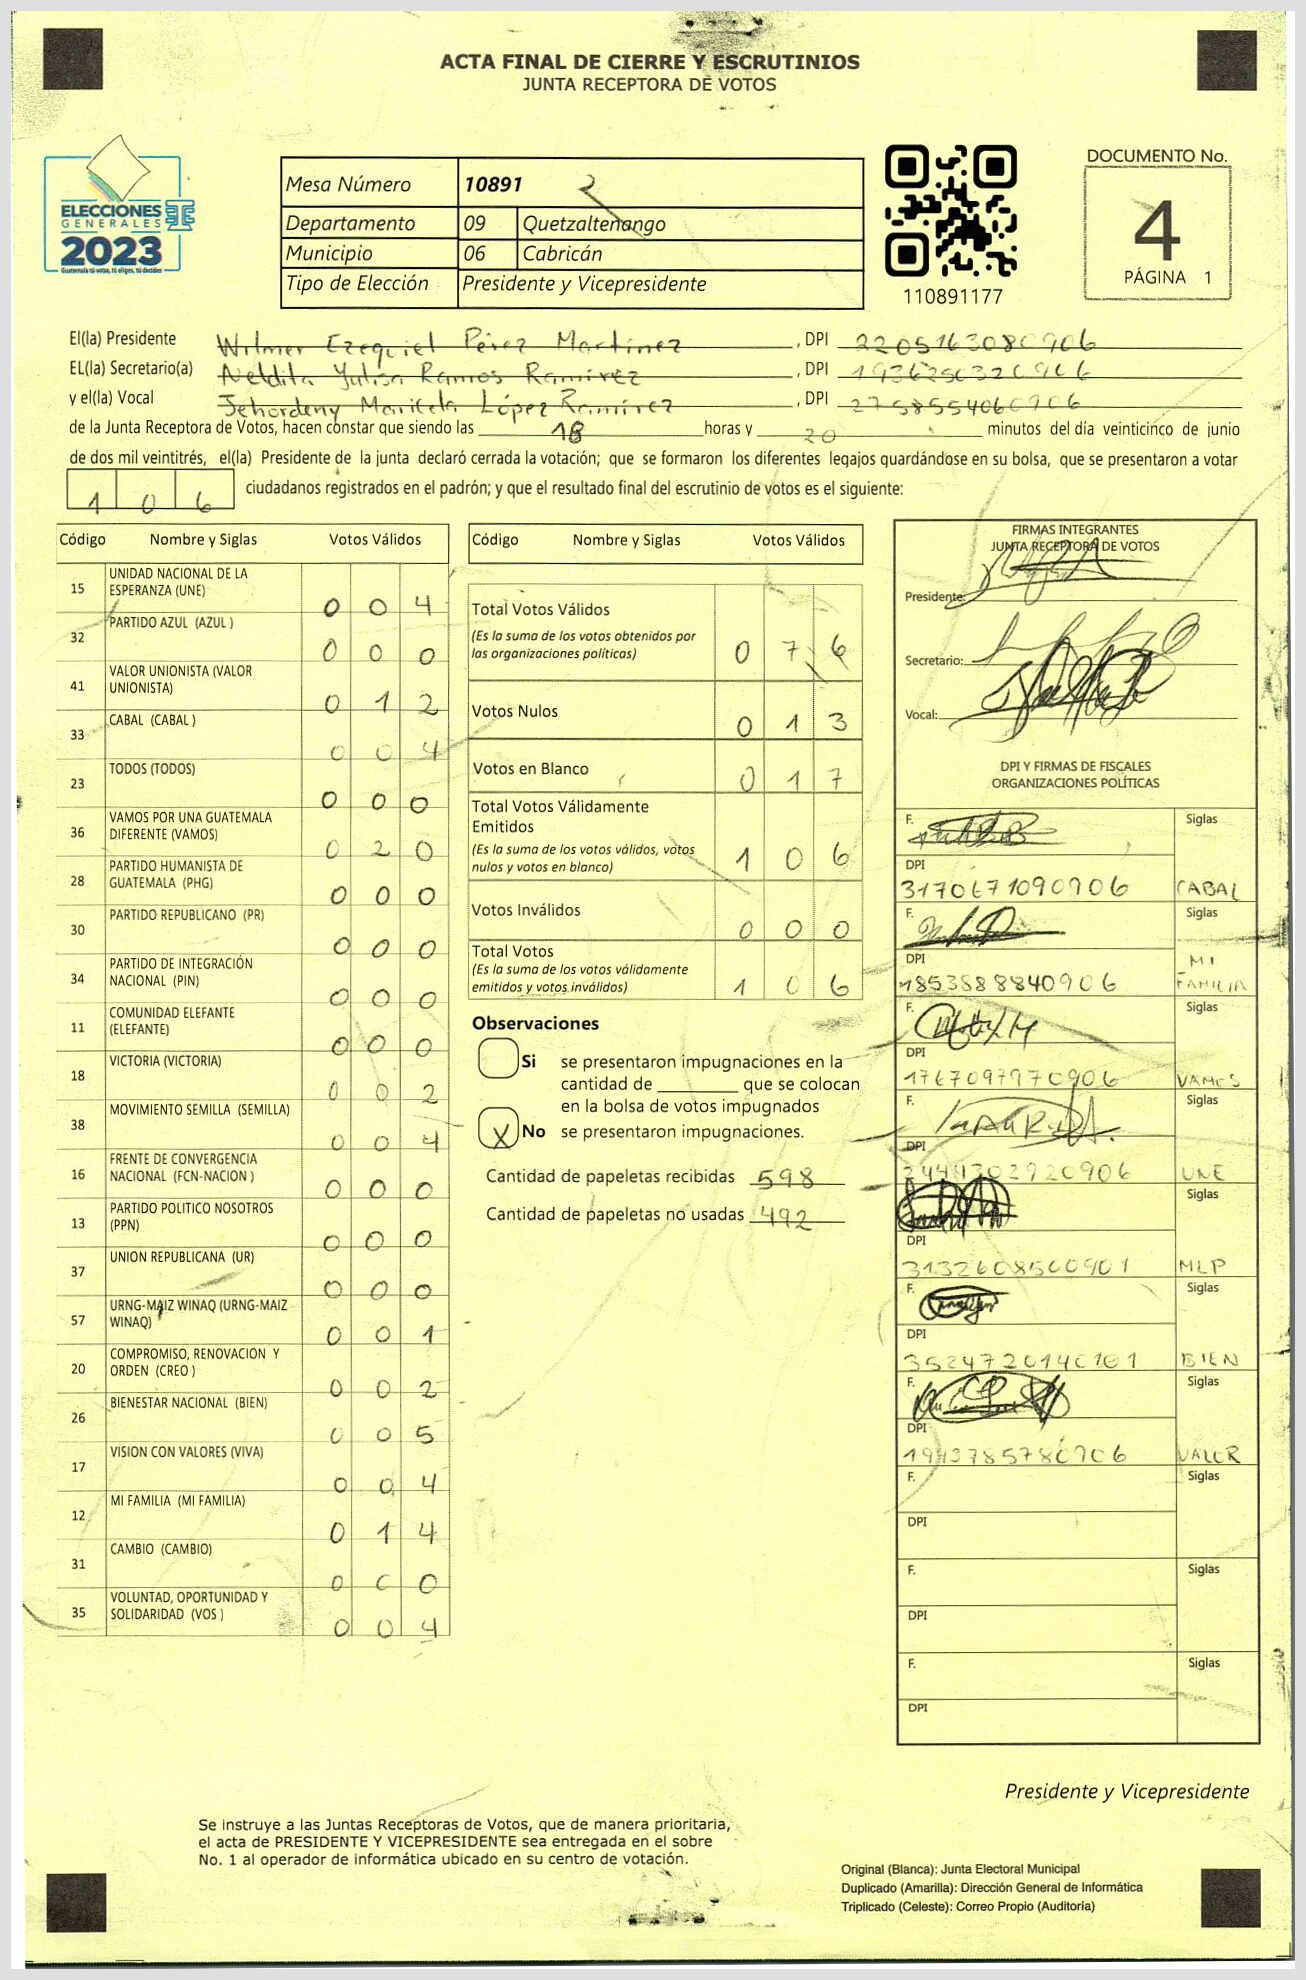 ACTA FINAL DE CIERRE Y ESCRUTINIOS
JUNTA RECEPTORA DE VOTOS
ELECCIONES
GENERALES
2023
Guatemala tú votas, tú eliges, tú decides
Mesa Número 10891 2
Departamento 09 Quetzaltenango
Municipio 06 Cabricán
Tipo de Elección Presidente y Vicepresidente
110891177
DOCUMENTO No.
4
PÁGINA 1
El(la) Presidente Wilmer Ezequiel Pérez Martínez, DPI 2205163080906
EL(la) Secretario(a) Neldita Yulisa Ramos Ramírez, DPI 1936250320906
y el(la) Vocal Jehordeny Maricela López Ramírez, DPI 2758554060906
de la Junta Receptora de Votos, hacen constar que siendo las 18 horas y 20 minutos del día veinticinco de junio
de dos mil veintitrés, el(la) Presidente de la junta declaró cerrada la votación; que se formaron los diferentes legajos guardándose en su bolsa, que se presentaron a votar
106 ciudadanos registrados en el padrón; y que el resultado final del escrutinio de votos es el siguiente:
Código Nombre y Siglas Votos Válidos
15 UNIDAD NACIONAL DE LA ESPERANZA (UNE) 004
32 PARTIDO AZUL (AZUL ) 000
41 VALOR UNIONISTA (VALOR UNIONISTA) 012
33 CABAL (CABAL ) 004
23 TODOS (TODOS) 000
36 VAMOS POR UNA GUATEMALA DIFERENTE (VAMOS) 020
28 PARTIDO HUMANISTA DE GUATEMALA (PHG) 000
30 PARTIDO REPUBLICANO (PR) 000
34 PARTIDO DE INTEGRACIÓN NACIONAL (PIN) 000
11 COMUNIDAD ELEFANTE (ELEFANTE) 000
18 VICTORIA (VICTORIA) 002
38 MOVIMIENTO SEMILLA (SEMILLA) 004
16 FRENTE DE CONVERGENCIA NACIONAL (FCN-NACION ) 000
13 PARTIDO POLITICO NOSOTROS (PPN) 000
37 UNION REPUBLICANA (UR) 000
57 URNG-MAIZ WINAQ (URNG-MAIZ WINAQ) 001
20 COMPROMISO, RENOVACION Y ORDEN (CREO ) 002
26 BIENESTAR NACIONAL (BIEN) 005
17 VISION CON VALORES (VIVA) 004
12 MI FAMILIA (MI FAMILIA) 014
31 CAMBIO (CAMBIO) 000
35 VOLUNTAD, OPORTUNIDAD Y SOLIDARIDAD (VOS ) 004
Código Nombre y Siglas Votos Válidos
Total Votos Válidos 076
(Es la suma de los votos obtenidos por
las organizaciones políticas)
Votos Nulos 013
Votos en Blanco 017
Total Votos Válidamente
Emitidos 106
(Es la suma de los votos válidos, votos
nulos y votos en blanco)
Votos Inválidos 000
Total Votos 106
(Es la suma de los votos válidamente
emitidos y votos inválidos)
Observaciones
Si se presentaron impugnaciones en la
cantidad de ________ que se colocan
en la bolsa de votos impugnados
X No se presentaron impugnaciones.
Cantidad de papeletas recibidas 598
Cantidad de papeletas no usadas 492
FIRMAS INTEGRANTES
JUNTA RECEPTORA DE VOTOS
Presidente:
Secretario:
Vocal:
DPI Y FIRMAS DE FISCALES
ORGANIZACIONES POLÍTICAS
F. Siglas
DPI
3170671090906 CABAL
F. Siglas
DPI MI
1853888840906 FAMILIA
F. Siglas
DPI
1767097970906 VAMOS
F. Siglas
DPI
2444302920906 UNE
Siglas
DPI
3132608500901 MLP
F. Siglas
DPI
3524720140101 BIEN
F. Siglas
DPI
1943785780906 VALOR
F. Siglas
DPI
F. Siglas
DPI
F. Siglas
DPI
Presidente y Vicepresidente
Se instruye a las Juntas Receptoras de Votos, que de manera prioritaria,
el acta de PRESIDENTE Y VICEPRESIDENTE sea entregada en el sobre
No. 1 al operador de informática ubicado en su centro de votación.
Original (Blanca): Junta Electoral Municipal
Duplicado (Amarilla): Dirección General de Informática
Triplicado (Celeste): Correo Propio (Auditoría)